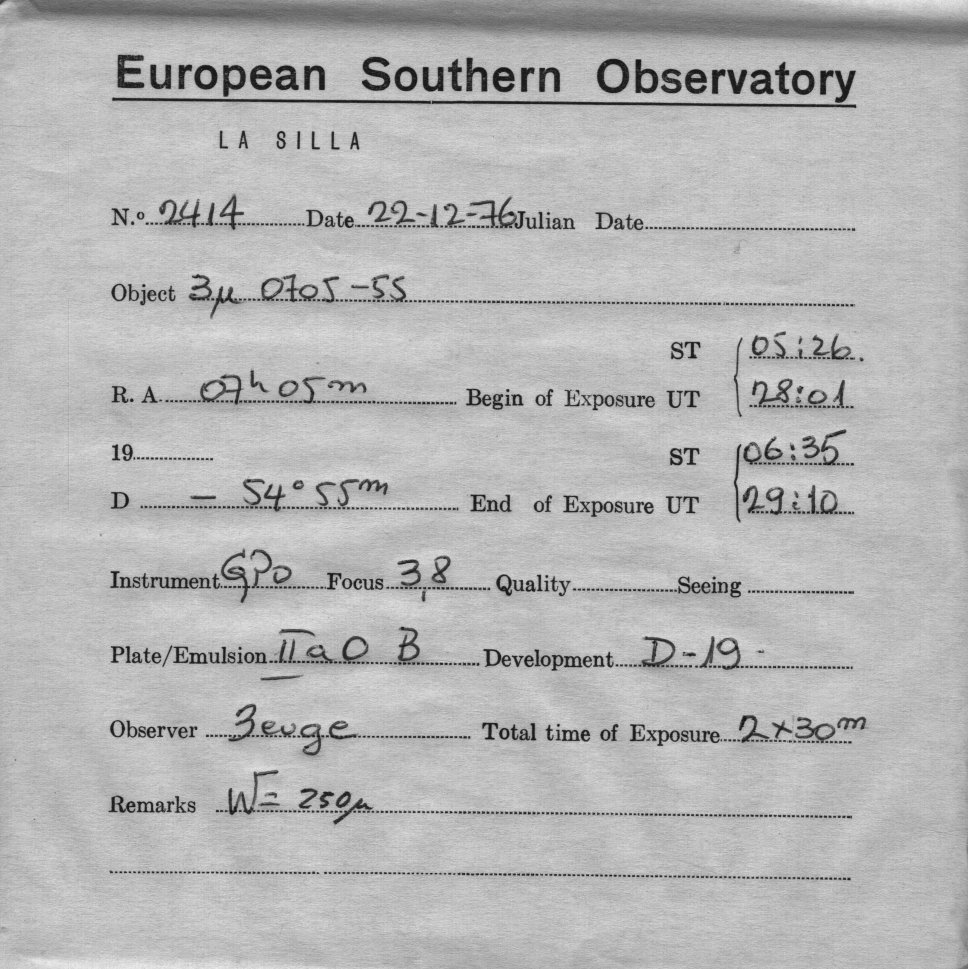 European Southern Observatory
LA SILLA
N.º 2414 Date 22-12-76 Julian Date
Object 3μ 0705-55
ST 05:26.
R. A. 07h 05m Begin of Exposure UT 28:01
19 ST 06:35
D - 54° 55m End of Exposure UT 29:10
Instrument GPO Focus 3,8 Quality Seeing
Plate/Emulsion IIaO B Development D-19
Observer Total time of Exposure 2×30m
Remarks W= 250μ